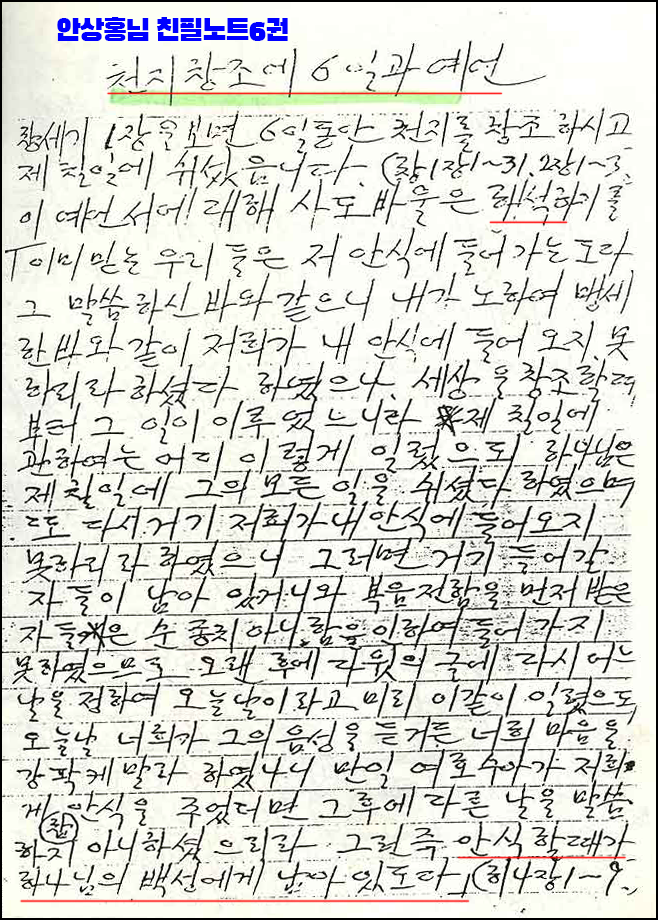 안상홍님 친필노트6권
천지창조에 6일과 예언
창세기 1장을 보면 6일동안 천지를 창조하시고
제 칠일에 쉬셨읍니다. (창1장1~31, 2장1~3,
이 예언서에 대해 사도바울은 해석하기를
「이미 믿는 우리들은 저 안식에 들어가는도다
그 말씀하신 바와 같으니 내가 노하여 맹세
한바와 같이 저희가 내 안식에 들어오지 못
하리라 하셨다 하였으나, 세상을 창조할때
부터 그 일이 이루었느니라 제 칠일에
관하여는 어디 이렇게 일렀으되 하나님은
제칠일에 그의 모든 일을 쉬셨다 하였으며
또 다시 거기 저희가 내 안식에 들어오지
못하리라 하였으니 그러면 거기 들어갈
자들이 남아 있거니와 복음전함을 먼저 받은
자들은 순종치 아니함을 인하여 들어가지
못하였으므로 오랜 후에 다윗의 글에 다시 어느
날을 정하여 오늘날이라고 미리 이같이 일렀으되,
오늘날 너희가 그의 음성을 듣거든 너희 마음을
강팍케 말라 하였나니 만일 여호수아가 저희에
게 안식을 주었더면 그후에 다른 날을 말씀
하지 아니하셨으리라 그런즉 안식할때가
하나님의 백성에게 남아 있도다」 (히4장1~9,